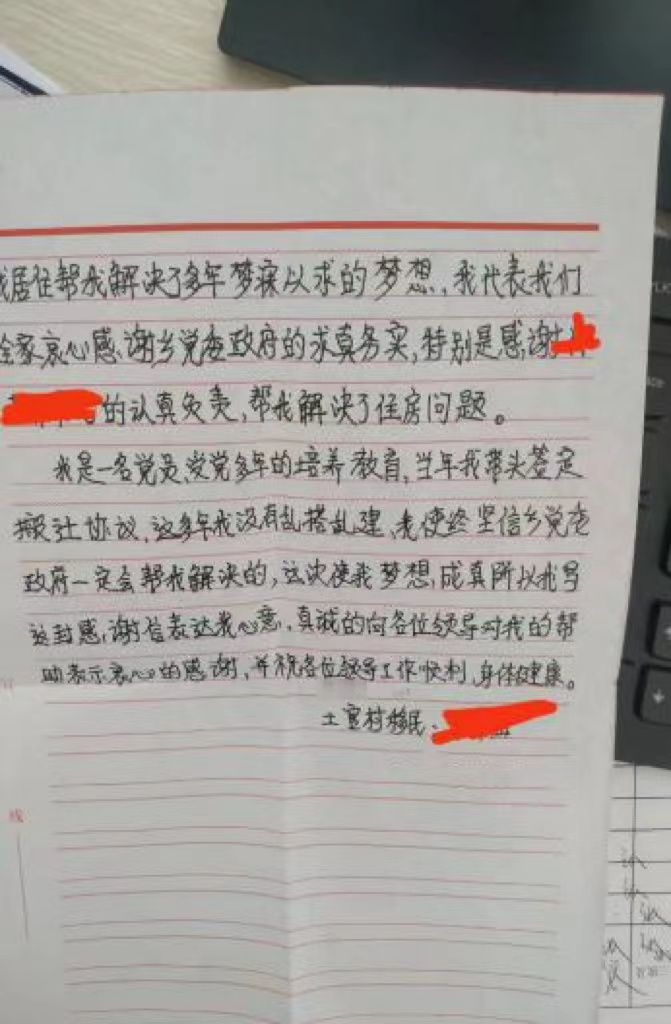 我居住帮我解决了多年梦寐以求的梦想，我代表我们
全家衷心感谢乡党委政府的求真务实，特别是感谢
的认真负责，帮我解决了住房问题。
我是一名党员，受党多年的培养教育，当年我带头签定
搬迁协议，这多年我没有乱搭乱建，我使终坚信乡党委
政府一定会帮我解决的，这次使我梦想，成真所以我写
这封感谢信表达我心意，真诚的向各位领导对我的帮
助表示衷心的感谢，并祝各位领导工作顺利，身体健康。
土官村移民：
线